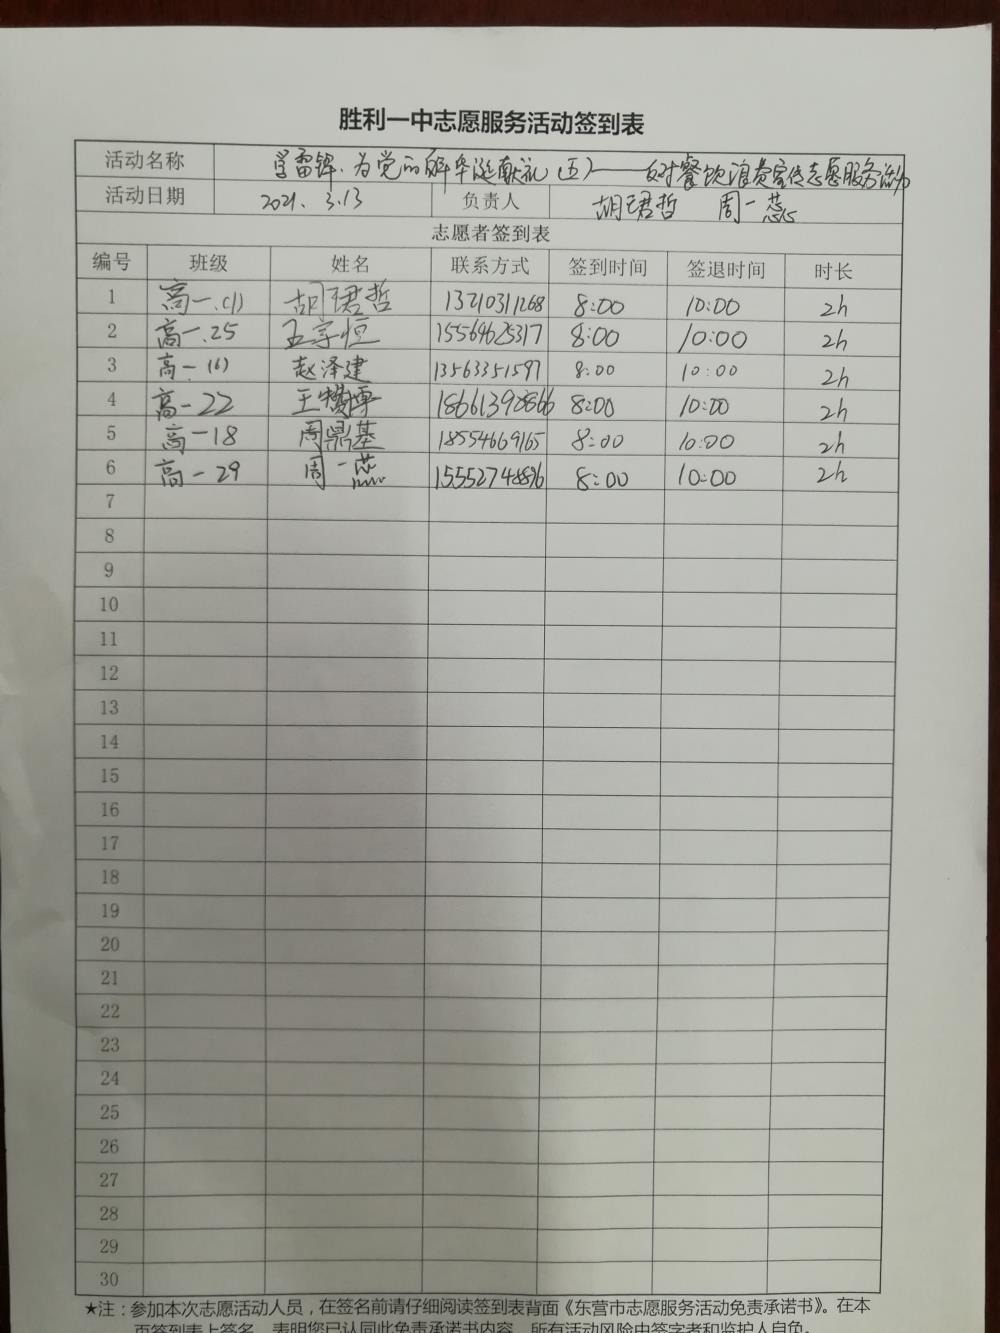 胜利一中志愿服务活动签到表
活动名称 学雷锋.为党的百年华诞献礼（五）——反对餐饮浪费宣传志愿服务活动
活动日期 2021. 3.13 负责人 胡珺哲 周一蕊
志愿者签到表
编号 班级 姓名 联系方式 签到时间 签退时间 时长
1 高一.(1) 胡珺哲 13210311268 8:00 10:00 2h
2 高一.25 王宇恒 15564625317 8:00 10:00 2h
3 高一.(6) 赵泽建 13563351597 8:00 10:00 2h
4 高一22 8:00 10:00 2h
5 高一18 周鼎基 18554669165 8:00 10:00 2h
6 高一29 周一蕊 8:00 10:00 2h
7
8
9
10
11
12
13
14
15
16
17
18
19
20
21
22
23
24
25
26
27
28
29
30
★注：参加本次志愿活动人员，在签名前请仔细阅读签到表背面《东营市志愿服务活动免责承诺书》。在本
页签到表上签名，表明您已认同此免责承诺书内容，所有活动风险由签字者和监护人自负。